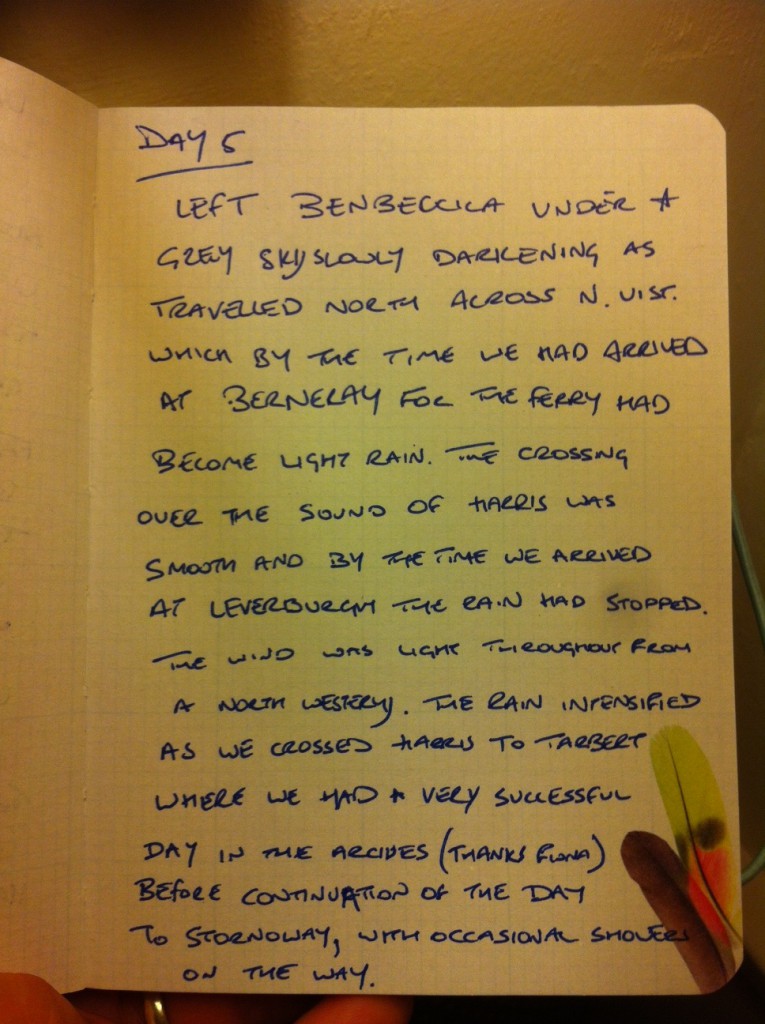 DAY 5
LEFT BENBECULA UNDER A
GREY SKY SLOWLY DARKENING AS
TRAVELLED NORTH ACROSS N. UIST.
WHICH BY THE TIME WE HAD ARRIVED
AT BERNERAY FOR THE FERRY HAD
BECOME LIGHT RAIN. THE CROSSING
OVER THE SOUND OF HARRIS WAS
SMOOTH AND BY THE TIME WE ARRIVED
AT LEVERBURGH THE RAIN HAD STOPPED.
THE WIND WAS LIGHT THROUGHOUT FROM
A NORTH WESTERLY. THE RAIN INTENSIFIED
AS WE CROSSED HARRIS TO TARBERT
WHERE WE HAD A VERY SUCCESSFUL
DAY IN THE ARCIVES (THANKS FIONA)
BEFORE CONTINUATION OF THE DAY
TO STORNOWAY, WITH OCCASIONAL SHOWERS
ON THE WAY.